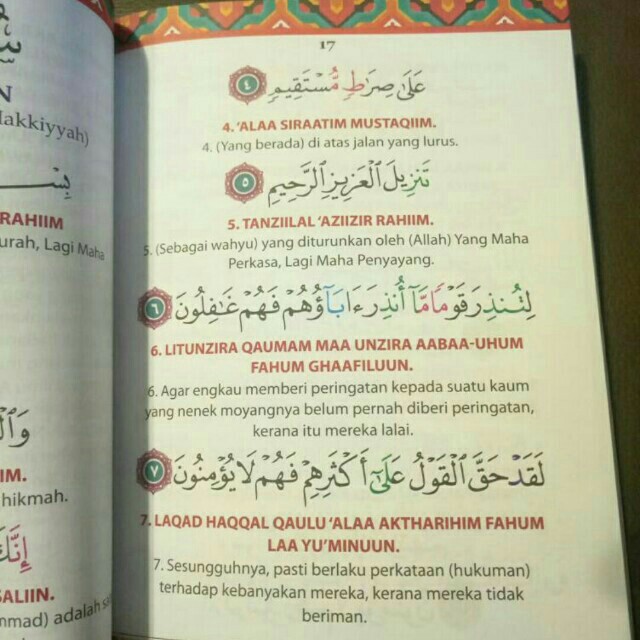 N
Makkiyyah)
RAHIIM
urah, Lagi Maha
IM.
hikmah.
إِنَّكَ
SALIIN.
mmad) adalah
17
عَلَىٰ صِرَٰطٍ مُّسْتَقِيمٍ ٤
4. 'ALAA SIRAATIM MUSTAQIIM.
4. (Yang berada) di atas jalan yang lurus.
تَنزِيلَ ٱلْعَزِيزِ ٱلرَّحِيمِ ٥
5. TANZIILAL 'AZIIZIR RAHIIM.
5. (Sebagai wahyu) yang diturunkan oleh (Allah) Yang Maha
Perkasa, Lagi Maha Penyayang.
لِتُنذِرَ قَوْمًا مَّآ أُنذِرَ ءَابَآؤُهُمْ فَهُمْ غَٰفِلُونَ ٦
6. LITUNZIRA QAUMAM MAA UNZIRA AABAA-UHUM
FAHUM GHAAFILUUN.
6. Agar engkau memberi peringatan kepada suatu kaum
yang nenek moyangnya belum pernah diberi peringatan,
kerana itu mereka lalai.
لَقَدْ حَقَّ ٱلْقَوْلُ عَلَىٰٓ أَكْثَرِهِمْ فَهُمْ لَا يُؤْمِنُونَ ٧
7. LAQAD HAQQAL QAULU 'ALAA AKTHARIHIM FAHUM
LAA YU'MINUUN.
7. Sesungguhnya, pasti berlaku perkataan (hukuman)
terhadap kebanyakan mereka, kerana mereka tidak
beriman.